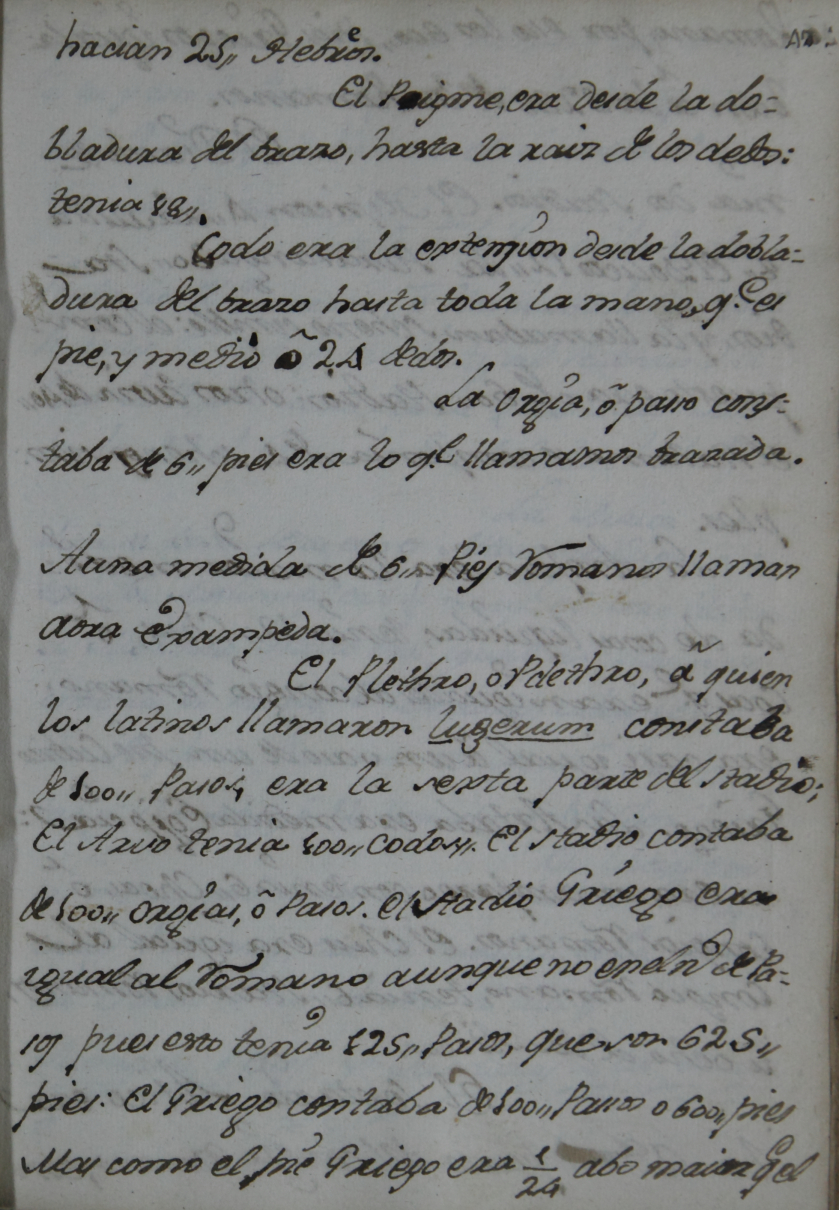 hacian 25,, Hebros.
El Poigme, era desde la do=
bladura del brazo, hasta la raiz de los dedos:
tenia 18,,.
Codo era la extension desde la dobla=
dura del brazo hasta toda la mano, q.e es
pie, y medio ô 24 dedos.
La Orgîa, ô paso cons=
taba de 6,, pies era lo q.l llamamos brazada.
A una medida de 6,, Piês Romanos llaman
aora Exampeda.
El Plethro, o Pdethro, â quien
los latinos llamaron Iugerum constaba
de 100,, Pasos, era la sexta parte del stadio;
El Arvo tenia 100,, Codos,,. El stadio contaba
de 100,, orgîas, ô Pasos. el stadio Griego era
igual al Romano aunque no en el n.o de Pa=
sos pues esto tenîa 125,, Pasos, que son 625,,
pies: El Griego contaba de 100,, Pasos o 600,, pies
Mas como el piê Griego era 1/24 abo maior q.e el